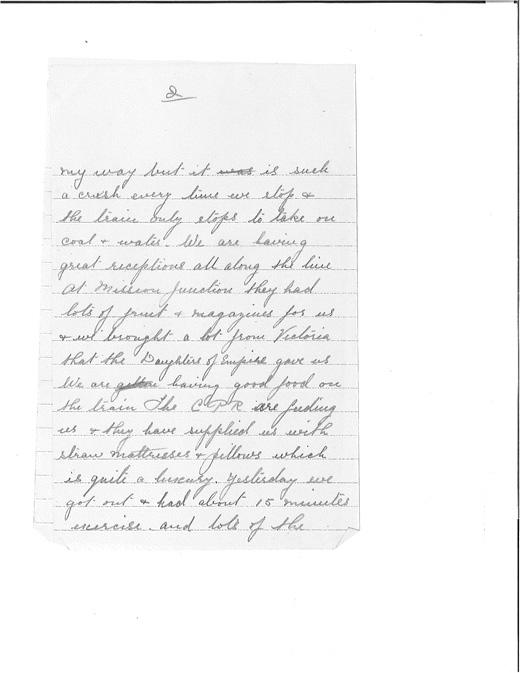 2
my way but it was is such
a crush every time we stop &
the train only stops to take on
coal & water. We are having
great receptions all along the line
At Mission Junction they had
lots of fruit & magazines for us
& we brought a lot from Victoria
that the Daughters of Empire gave us
We are having good food on
the train The CPR are feeding
us & they have supplied us with
straw mattresses & pillows which
is quite a luxury. Yesterday we
got out & had about 15 minutes
exercise. and lots of the